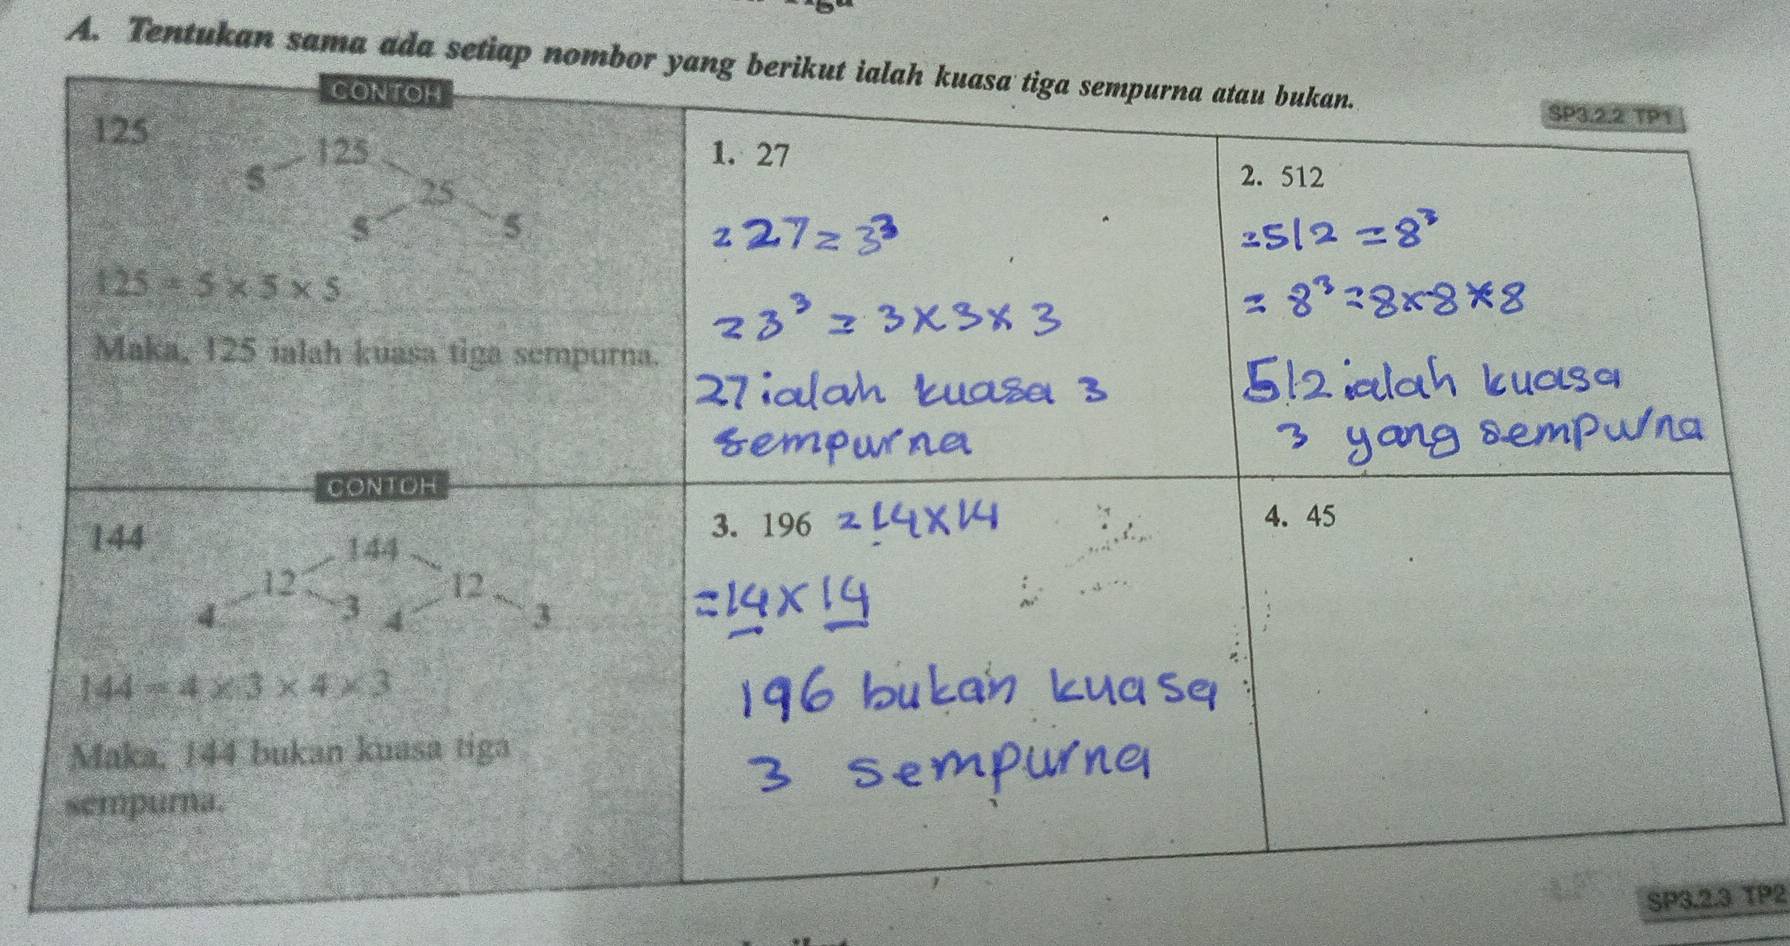 A. Tentukan sama ada setiap nombor yang berikut ialah kuasa tiga sempurna atau bukan.
SP3.2.2 TP1
CONTOH
125
125
5
25
5 5
125 = 5 × 5 × 5
Maka, 125 ialah kuasa tiga sempurna.
1. 27
= 27 = 3³
= 3³ = 3 × 3 × 3
27 ialah kuasa 3
sempurna
2. 512
= 512 = 8³
= 8³ = 8 × 8 × 8
512 ialah kuasa
3 yang sempurna
CONTOH
144
144
12 12
4 3 4 3
144 = 4 × 3 × 4 × 3
Maka, 144 bukan kuasa tiga
sempurna.
3. 196 = 14 × 14
= 14 × 14
196 bukan kuasa
3 sempurna
4. 45
SP3.2.3 TP2